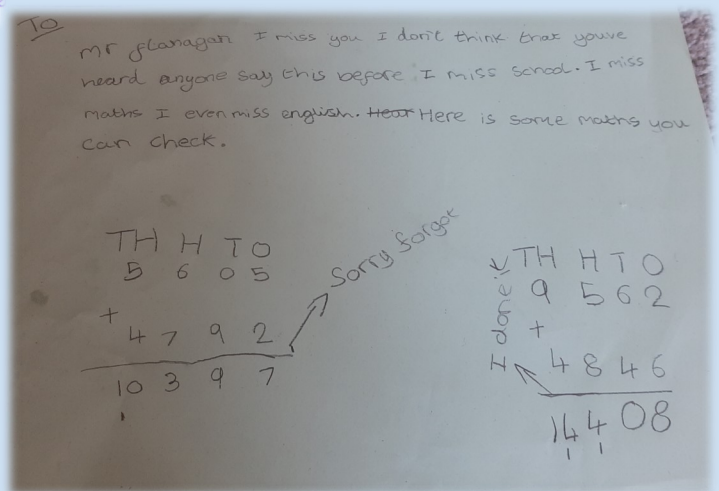 To
Mr flanagan I miss you I don't think that youve
heard anyone say this before I miss school. I miss
maths I even miss english. Here is some maths you
can check.
TH H T O
5 6 0 5
+
4 7 9 2
10 3 9 7
1
Sorry forgot
TH H T O
9 5 6 2
+
4 8 4 6
14 4 0 8
1 1
I done it